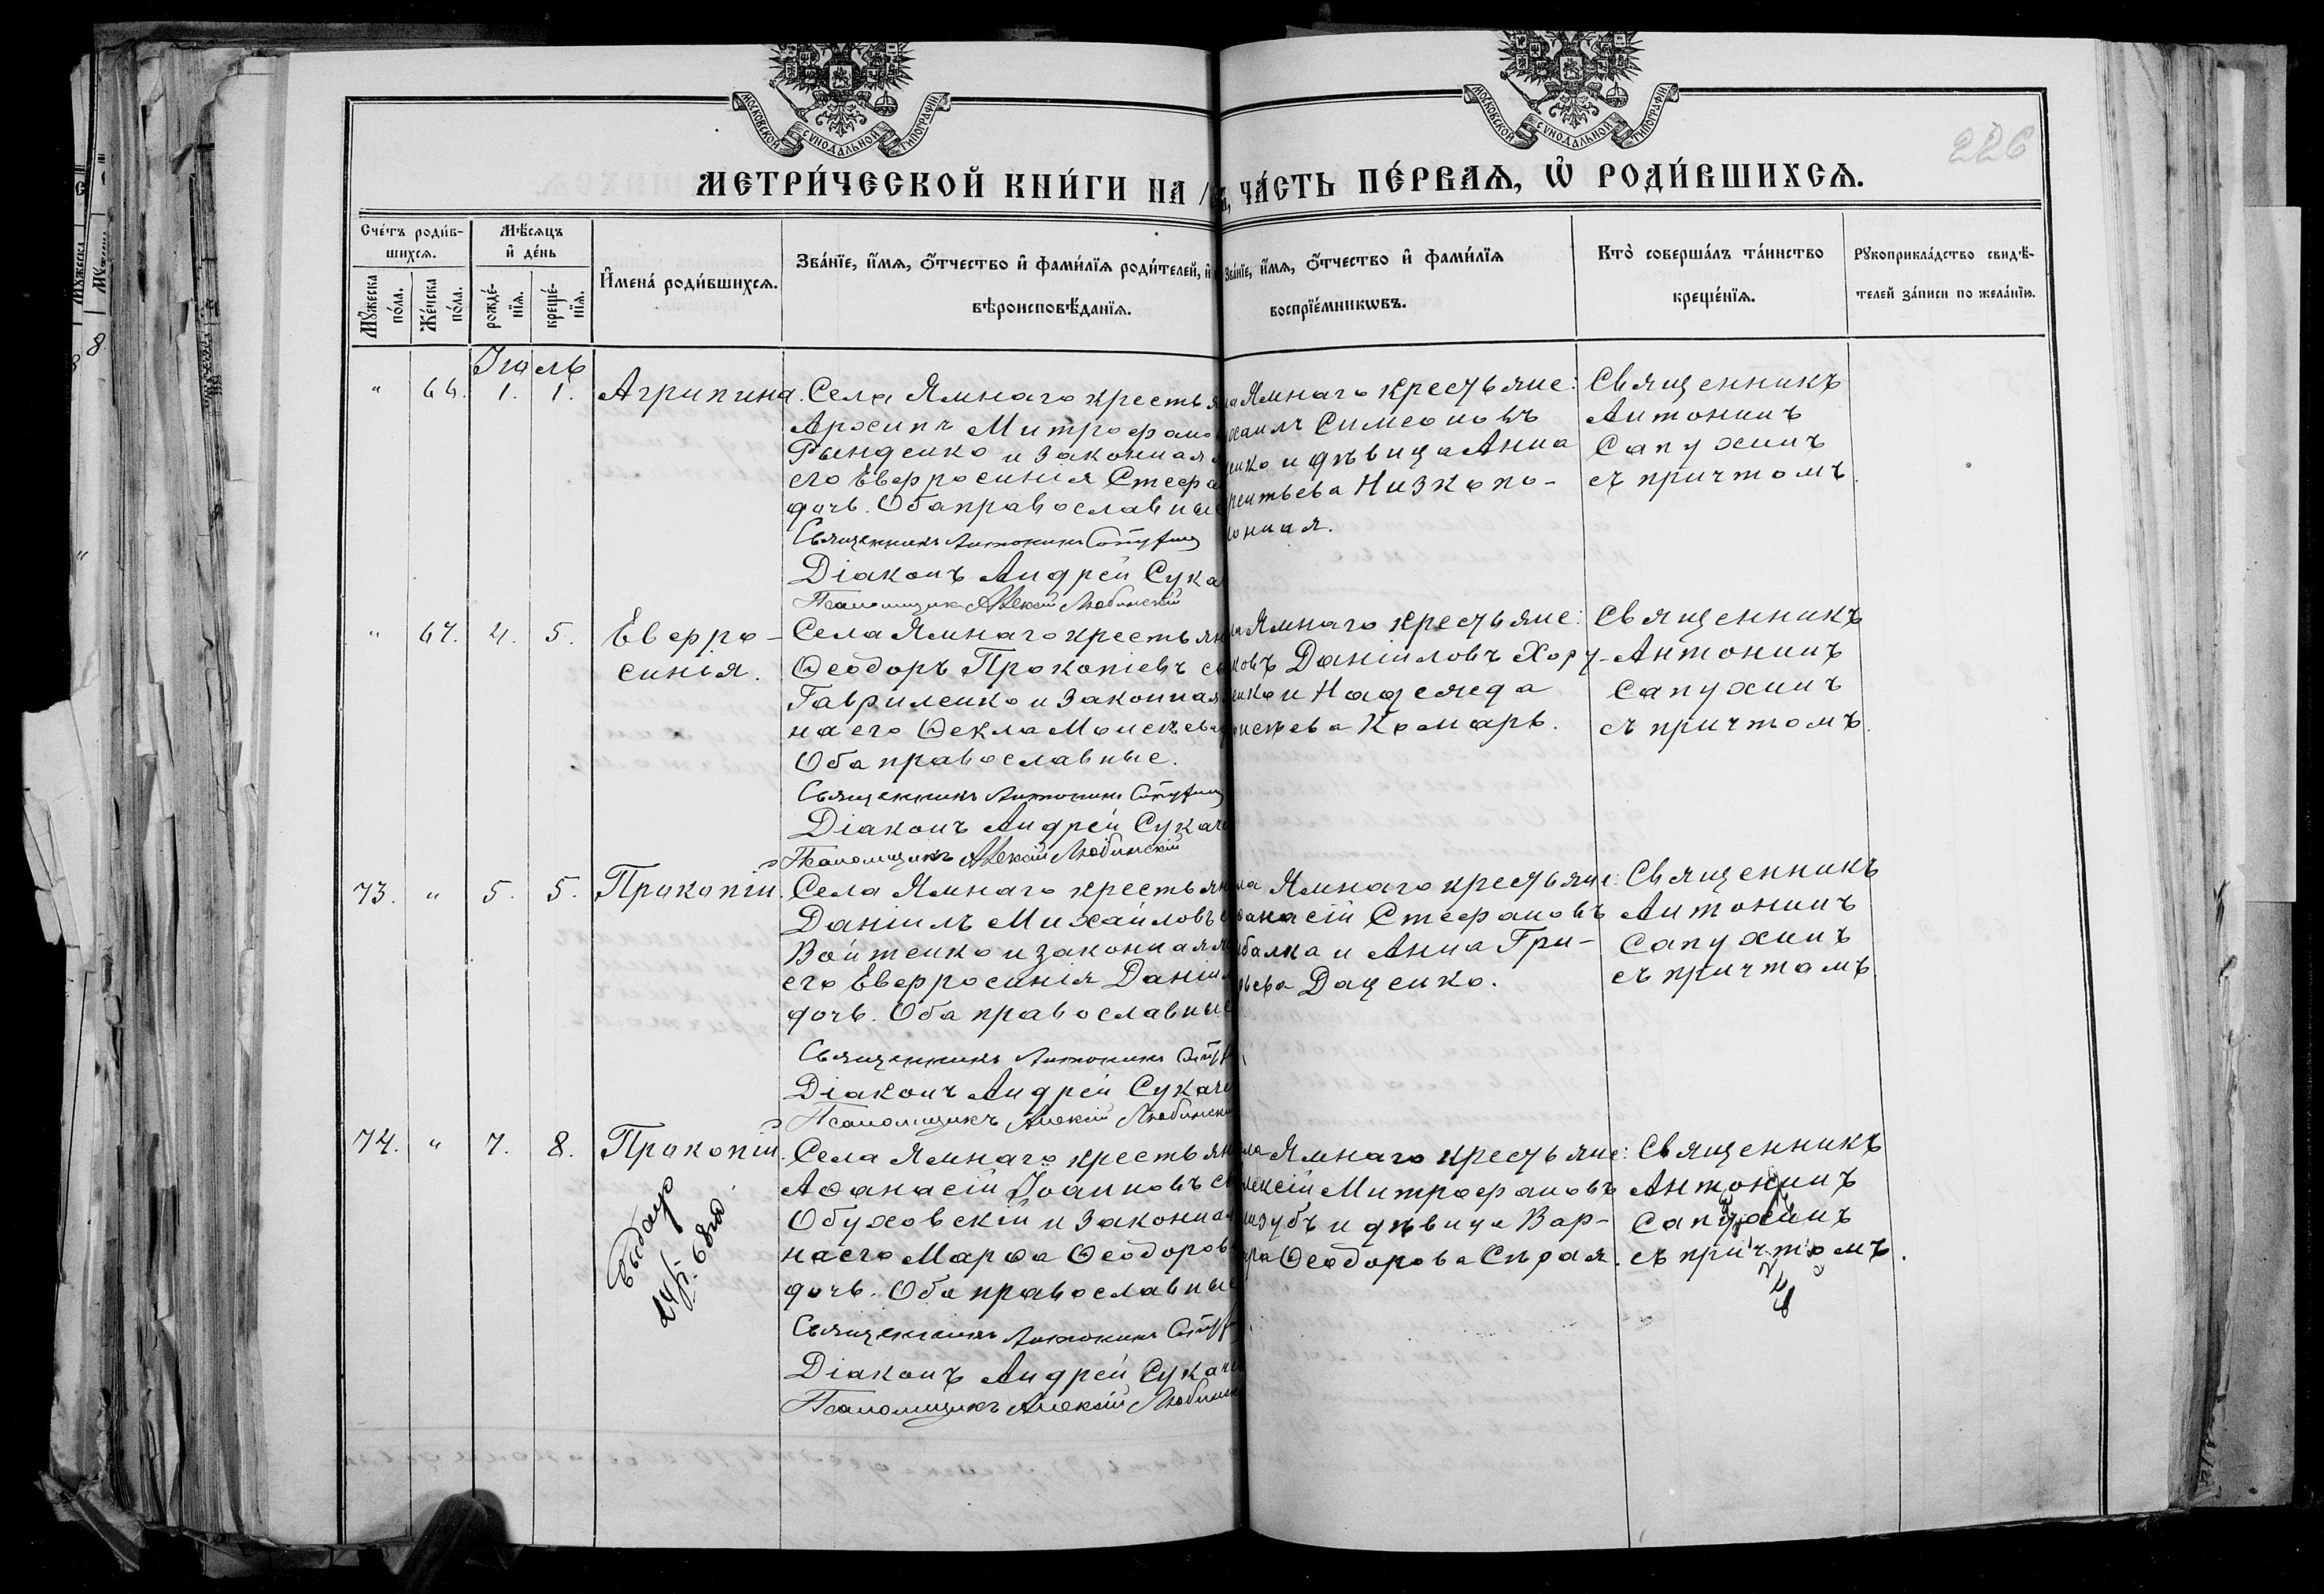 МОСКОВСКОЙ СУНОДАЛЬНОЙ ТИПОГРАФІИ
МОСКОВСКОЙ СУНОДАЛЬНОЙ ТИПОГРАФІИ
226
МЕТРИ́ЧЕСКОЙ КНИ́ГИ НА ЧА́СТЬ ПЕ́РВАѦ, Ѡ҆ РОДИ́ВШИХСѦ.
Сче́тъ роди́в-
шихсѧ.
Мꙋ́жеска по́ла.
Же́нска по́ла.
Мѣ́сѧцъ
и҆ де́нь
рожде́-
нїѧ.
креще́-
нїѧ.
И҆мена̀ роди́вшихсѧ.
Зва́нїе, и҆́мѧ, ѻ҆́тчество и҆ фами́лїѧ роди́телей, и҆
вѣроисповѣ́данїѧ.
Зва́нїе, и҆́мѧ, ѻ҆́тчество и҆ фами́лїѧ
воспрїе́мникѡвъ.
Кто̀ соверша́лъ та́инство
креще́нїѧ.
Рꙋкоприкла́дство свидѣ́-
телей за́писи по жела́нїю.
Іюль
" 66. 1. 1. Агрипина.
Села Ямнаго крестья
Архипъ Митрофано
Рынденко и законная
его Евфросинія Стеф
дочь. Оба православные
Священникъ Антонинъ Сапухин
Діаконъ Андрей Сука
Псаломщикъ Алексій Любинскій
Ямнаго крестьяне:
хаилъ Симеоновъ
енко и дѣвица Анна
рентьева Низкопо-
лонная.
Священникъ
Антонинъ
Сапухинъ
съ причтомъ.
" 67. 4. 5. Евфро-
синія.
Села Ямнаго крестьян
Ѳеодоръ Прокопіевъ с
Гавриленко и законная
на его Ѳекла Моисѣева
Оба православные.
Священникъ Антонинъ Сапухин
Діаконъ Андрей Сукаче
Псаломщикъ Алексій Любинскій
Ямнаго крестьяне:
ковъ Даніиловъ Хору-
енко и Надежда
оисѣева Комарь.
Священникъ
Антонинъ
Сапухинъ
съ причтомъ.
73. " 5. 5. Прокопій.
Села Ямнаго крестьян
Даніилъ Михайловъ с
Войтенко и законная
его Евфросинія Даніил
дочь. Оба православные
Священникъ Антонинъ Сапух
Діаконъ Андрей Сукаче
Псаломщикъ Алексій Любинскі
ла Ямнаго крестьяне:
ѳанасій Стефановъ
ыбалка и Анна Гри-
рьева Даценко.
Священникъ
Антонинъ
Сапухинъ
съ причтомъ.
74. " 7. 8. Прокопій.
Выдано
Села Ямнаго крестьян
Аѳанасій Іоанновъ с
Обуховскій и законная
на его Марѳа Ѳеодоров
дочь. Оба православные
Священникъ Антонинъ Сапух
Діаконъ Андрей Сукаче
Псаломщикъ Алексій Любинск
ла Ямнаго крестьяне:
лексій Митрофановъ
изубъ и дѣвица Вар-
ара Ѳеодорова Сѣрая.
Священникъ
Антонинъ
Сапухинъ
съ причтомъ.